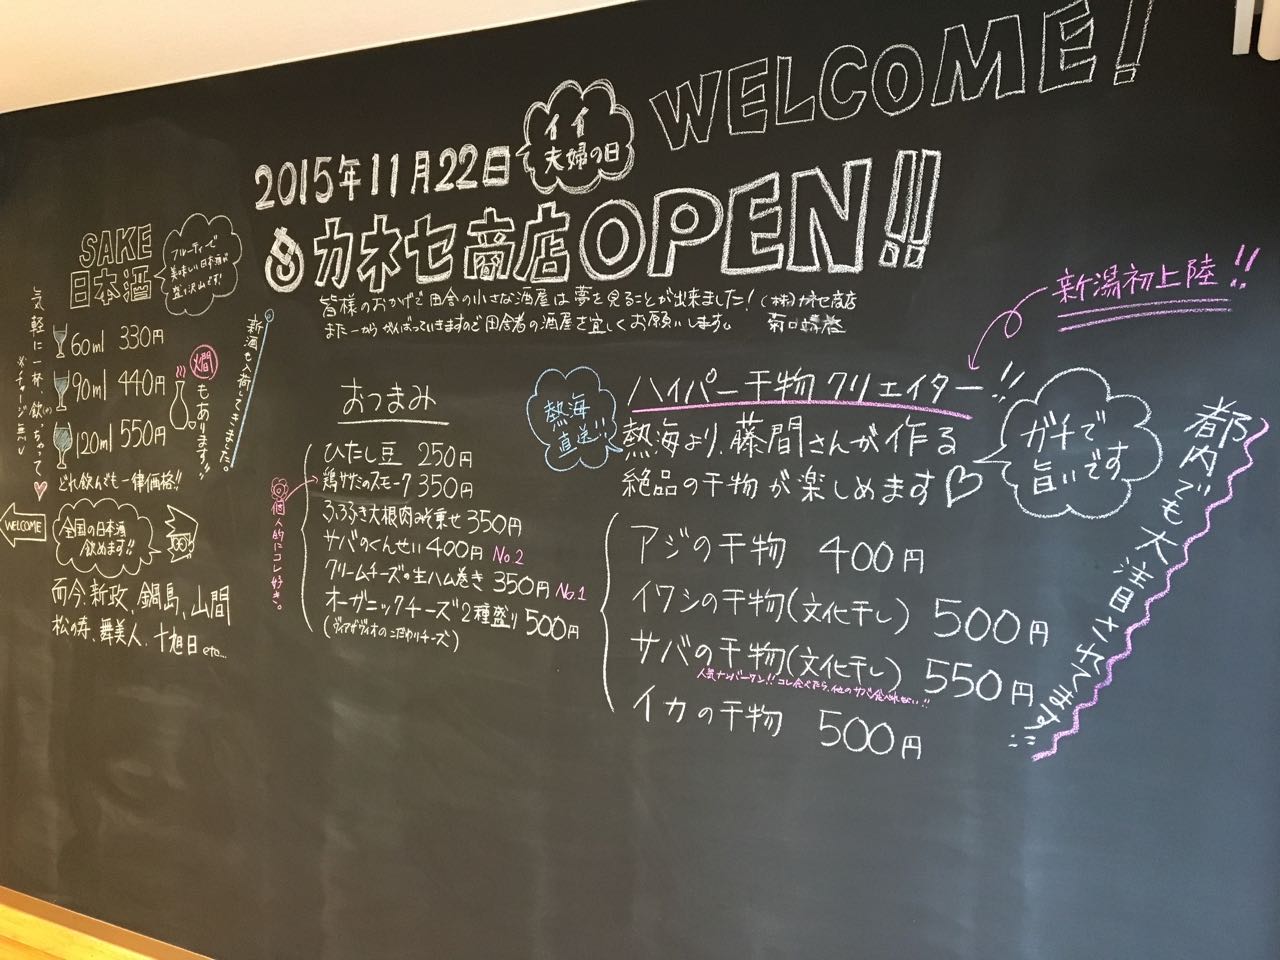 WELCOME!
イイ
夫婦の日
2015年11月22日
カネセ商店OPEN!!
皆様のおかげで田舎の小さな酒屋は夢を見ることが出来ました! (株)カネセ商店
また一からがんばっていきますので田舎者の酒屋を宜しくお願いします。
SAKE
日本酒
フルーティーで
美味しい日本酒が
盛り沢山です!
気軽に一杯、飲んじゃって♥
※チャージ無し
60ml 330円
90ml 440円
120ml 550円
燗もあります!!
新酒も入荷してきました。
どれ飲んでも一律価格!!
WELCOME
全国の日本酒
飲めます!!
而今、新政、鍋島、山間
松の寿、舞美人、十旭日 etc...
おつまみ
ひたし豆 250円
鶏ササミのスモーク 350円
ふろふき大根肉みそ乗せ 350円
サバのくんせい 400円 No2
クリームチーズの生ハム巻き 350円 No1
オーガニックチーズ2種盛り 500円
個人的にコレ好き。
新潟初上陸!!
ハイパー干物クリエイター!!
熱海
直送!!
熱海より、藤間さんが作る
絶品の干物が楽しめます♡
ガチで
旨いです
アジの干物 400円
イワシの干物(文化干し) 500円
サバの干物(文化干し) 550円
人気ナンバーワン!! コレ食べたら、他のサバ食べれない!!
イカの干物 500円
都内でも大注目されてます!!